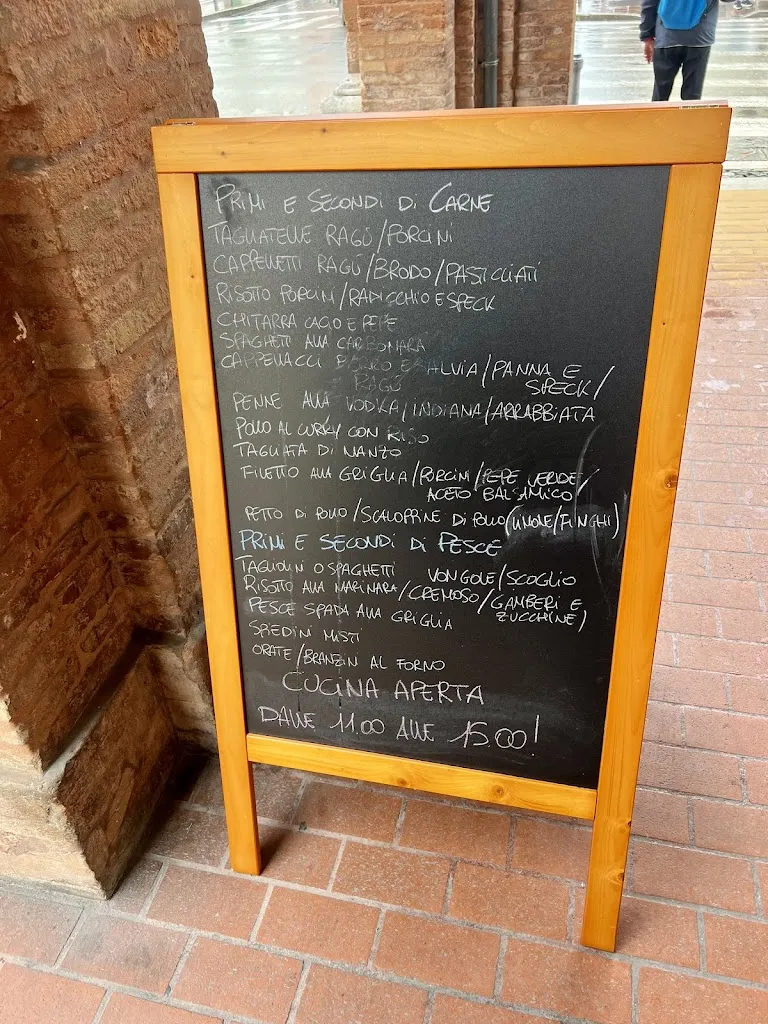 PRIMI E SECONDI DI CARNE
TAGLIATELLE RAGÚ/PORCINI
CAPPELLETTI RAGÚ/BRODO/PASTICCIATI
RISOTTO PORCINI/RADICCHIO E SPECK
CHITARRA CACIO E PEPE
SPAGHETTI ALLA CARBONARA
CAPPELLACCI BURRO E SALVIA/PANNA E SPECK/
RAGÚ
PENNE ALLA VODKA/INDIANA/ARRABBIATA
POLLO AL CURRY CON RISO
TAGLIATA DI MANZO
FILETTO ALLA GRIGLIA/PORCINI/PEPE VERDE/
ACETO BALSAMICO/
PETTO DI POLLO/SCALOPPINE DI POLLO (LIMONE/FUNGHI)
PRIMI E SECONDI DI PESCE
TAGLIOLINI O SPAGHETTI VONGOLE/SCOGLIO
RISOTTO ALLA MARINARA/CREMOSO/GAMBERI E
ZUCCHINE)
PESCE SPADA ALLA GRIGLIA
SPIEDINI MISTI
ORATE/BRANZINI AL FORNO
CUCINA APERTA
DALLE 11.00 ALLE 15.00!